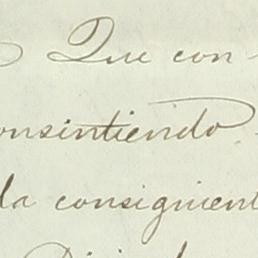 Que con-
onsintiendo
da consiguient